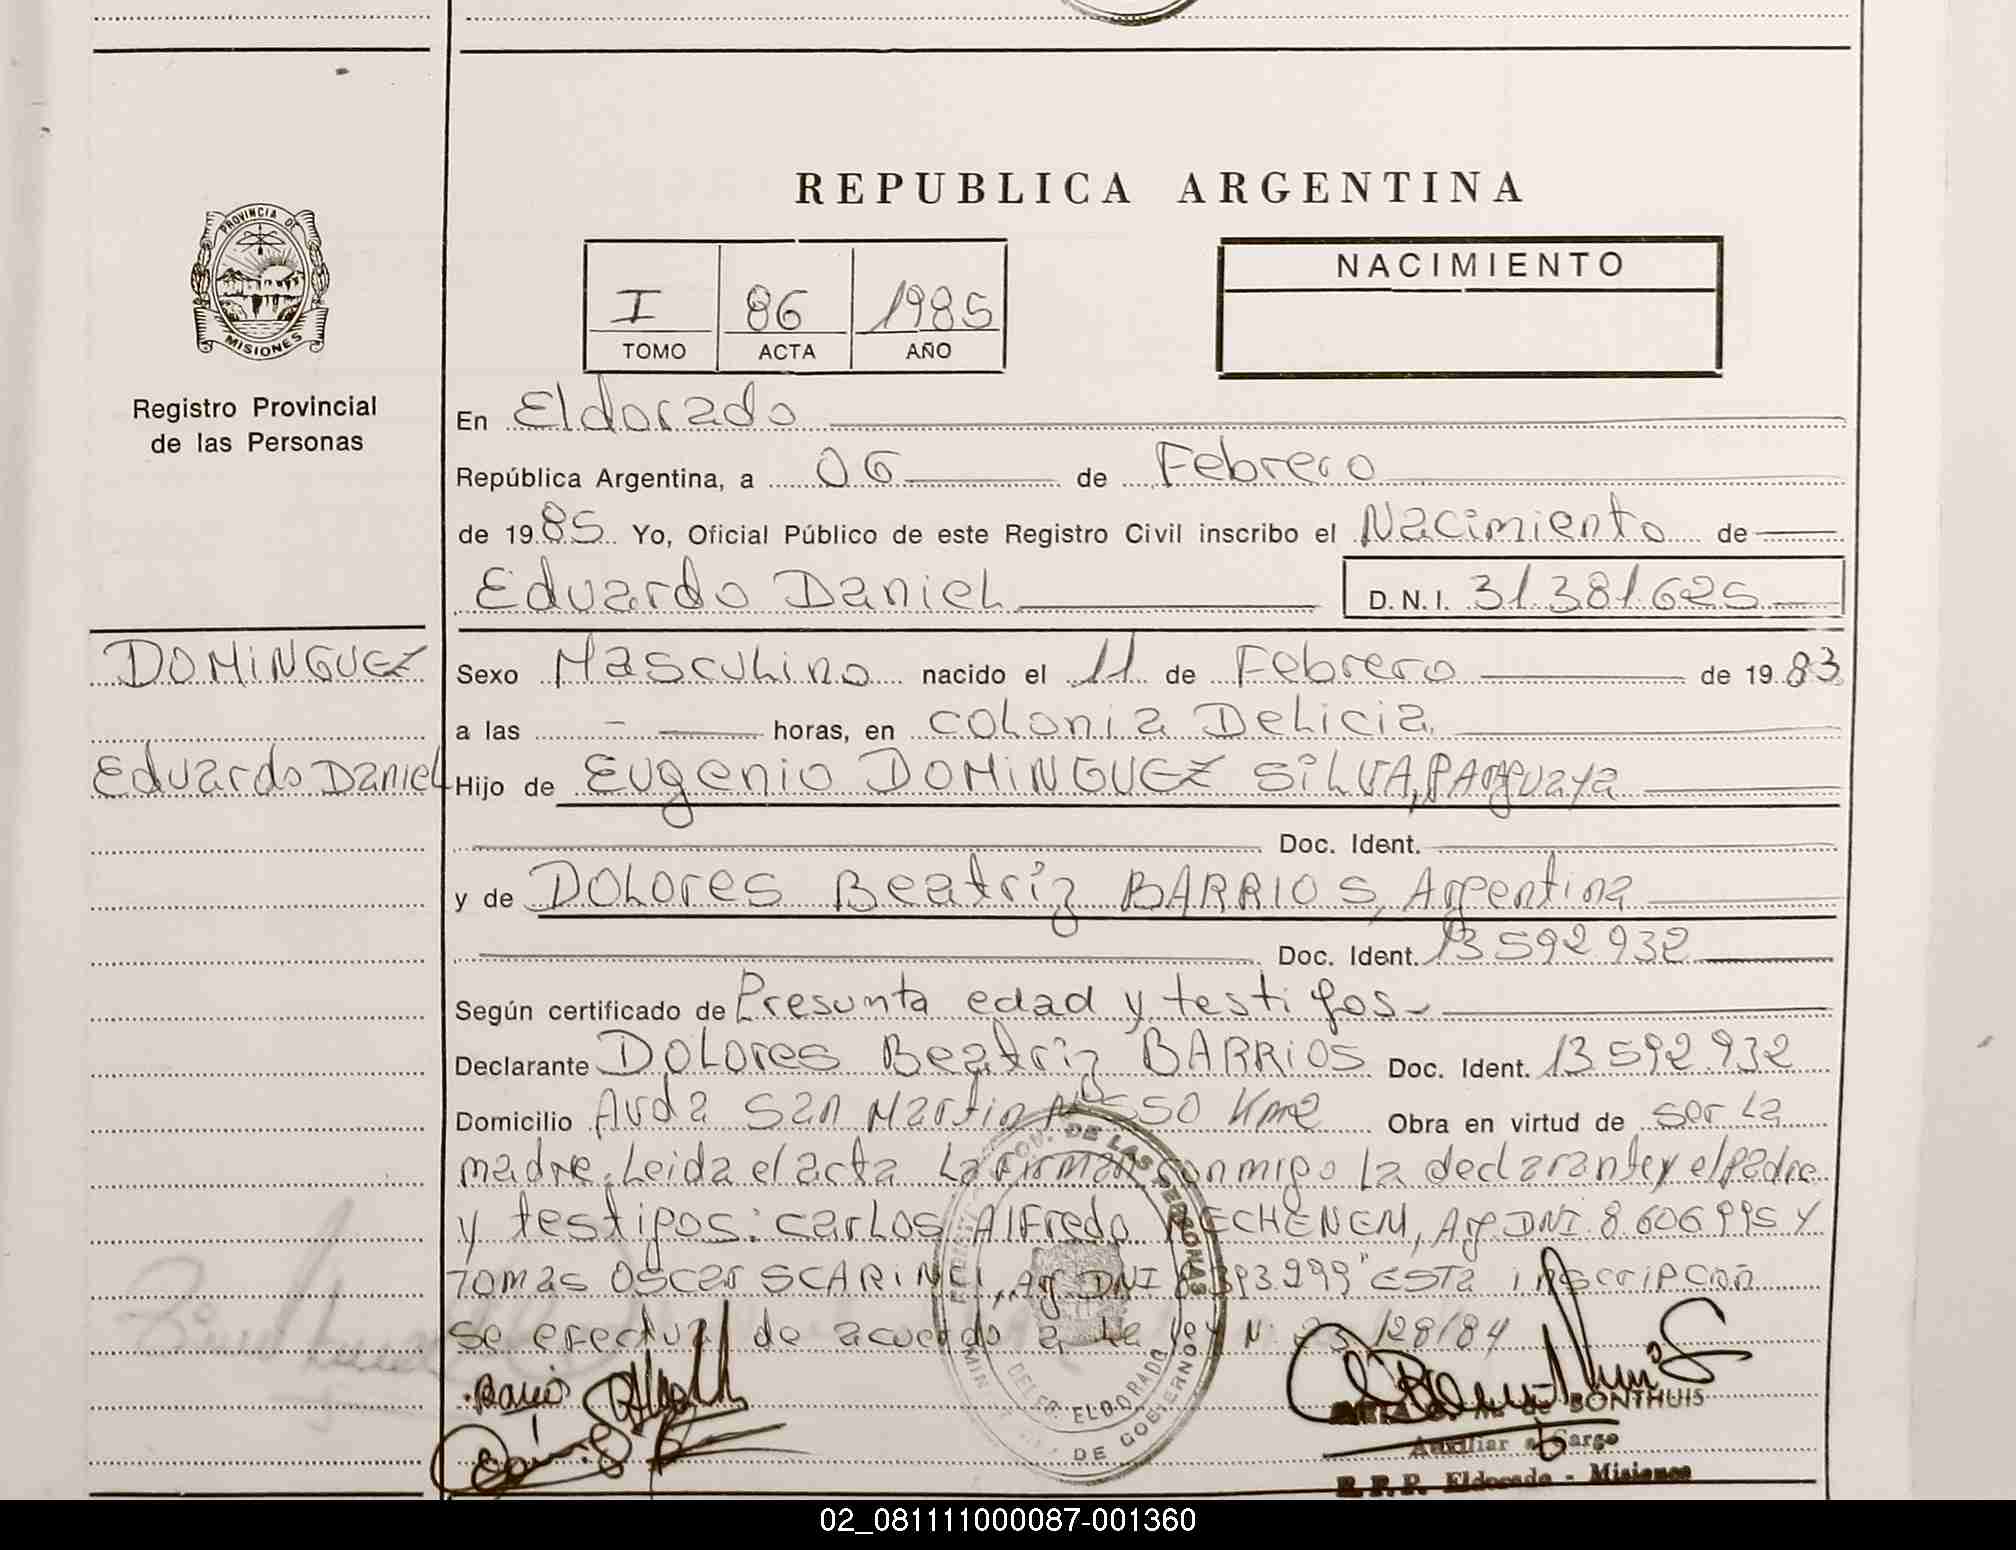 REPUBLICA ARGENTINA
PROVINCIA DE
MISIONES
Registro Provincial
de las Personas
I 86 1985
TOMO ACTA AÑO
NACIMIENTO
En Eldorado
República Argentina, a 06 de Febrero
de 1985 Yo, Oficial Público de este Registro Civil inscribo el Nacimiento de
Eduardo Daniel D.N.I. 31.381.625
DOMINGUEZ
Eduardo Daniel
Sexo Masculino nacido el 11 de Febrero de 1983
a las - horas, en Colonia Delicia
Hijo de Eugenio DOMINGUEZ SILVA, PArguaya
Doc. Ident.
y de Dolores Beatriz BARRIOS, Argentina
Doc. Ident. 13.592.932
Según certificado de Presunta edad y testigos
Declarante Dolores Beatriz BARRIOS Doc. Ident. 13.592.932
Domicilio Avda San Martin Nº 550 Km2 Obra en virtud de ser la
madre. Leida el acta la firman conmigo la declarante y el padre
y testigos: Carlos Alfredo Arg. DNI. 8.606.995 y
Tomas Oscar SCARINCI, Arg. DNI "Esta inscripcion
se efectua de acuerdo a la ley Nº /28/84
DE LAS PERSONAS
DELEG. ELDORADO
MIN DE GOBIERNO
Barrios
de BONTHUIS
Auxiliar a Cargo
R.P.P. Eldorado - Misiones
02_081111000087-001360